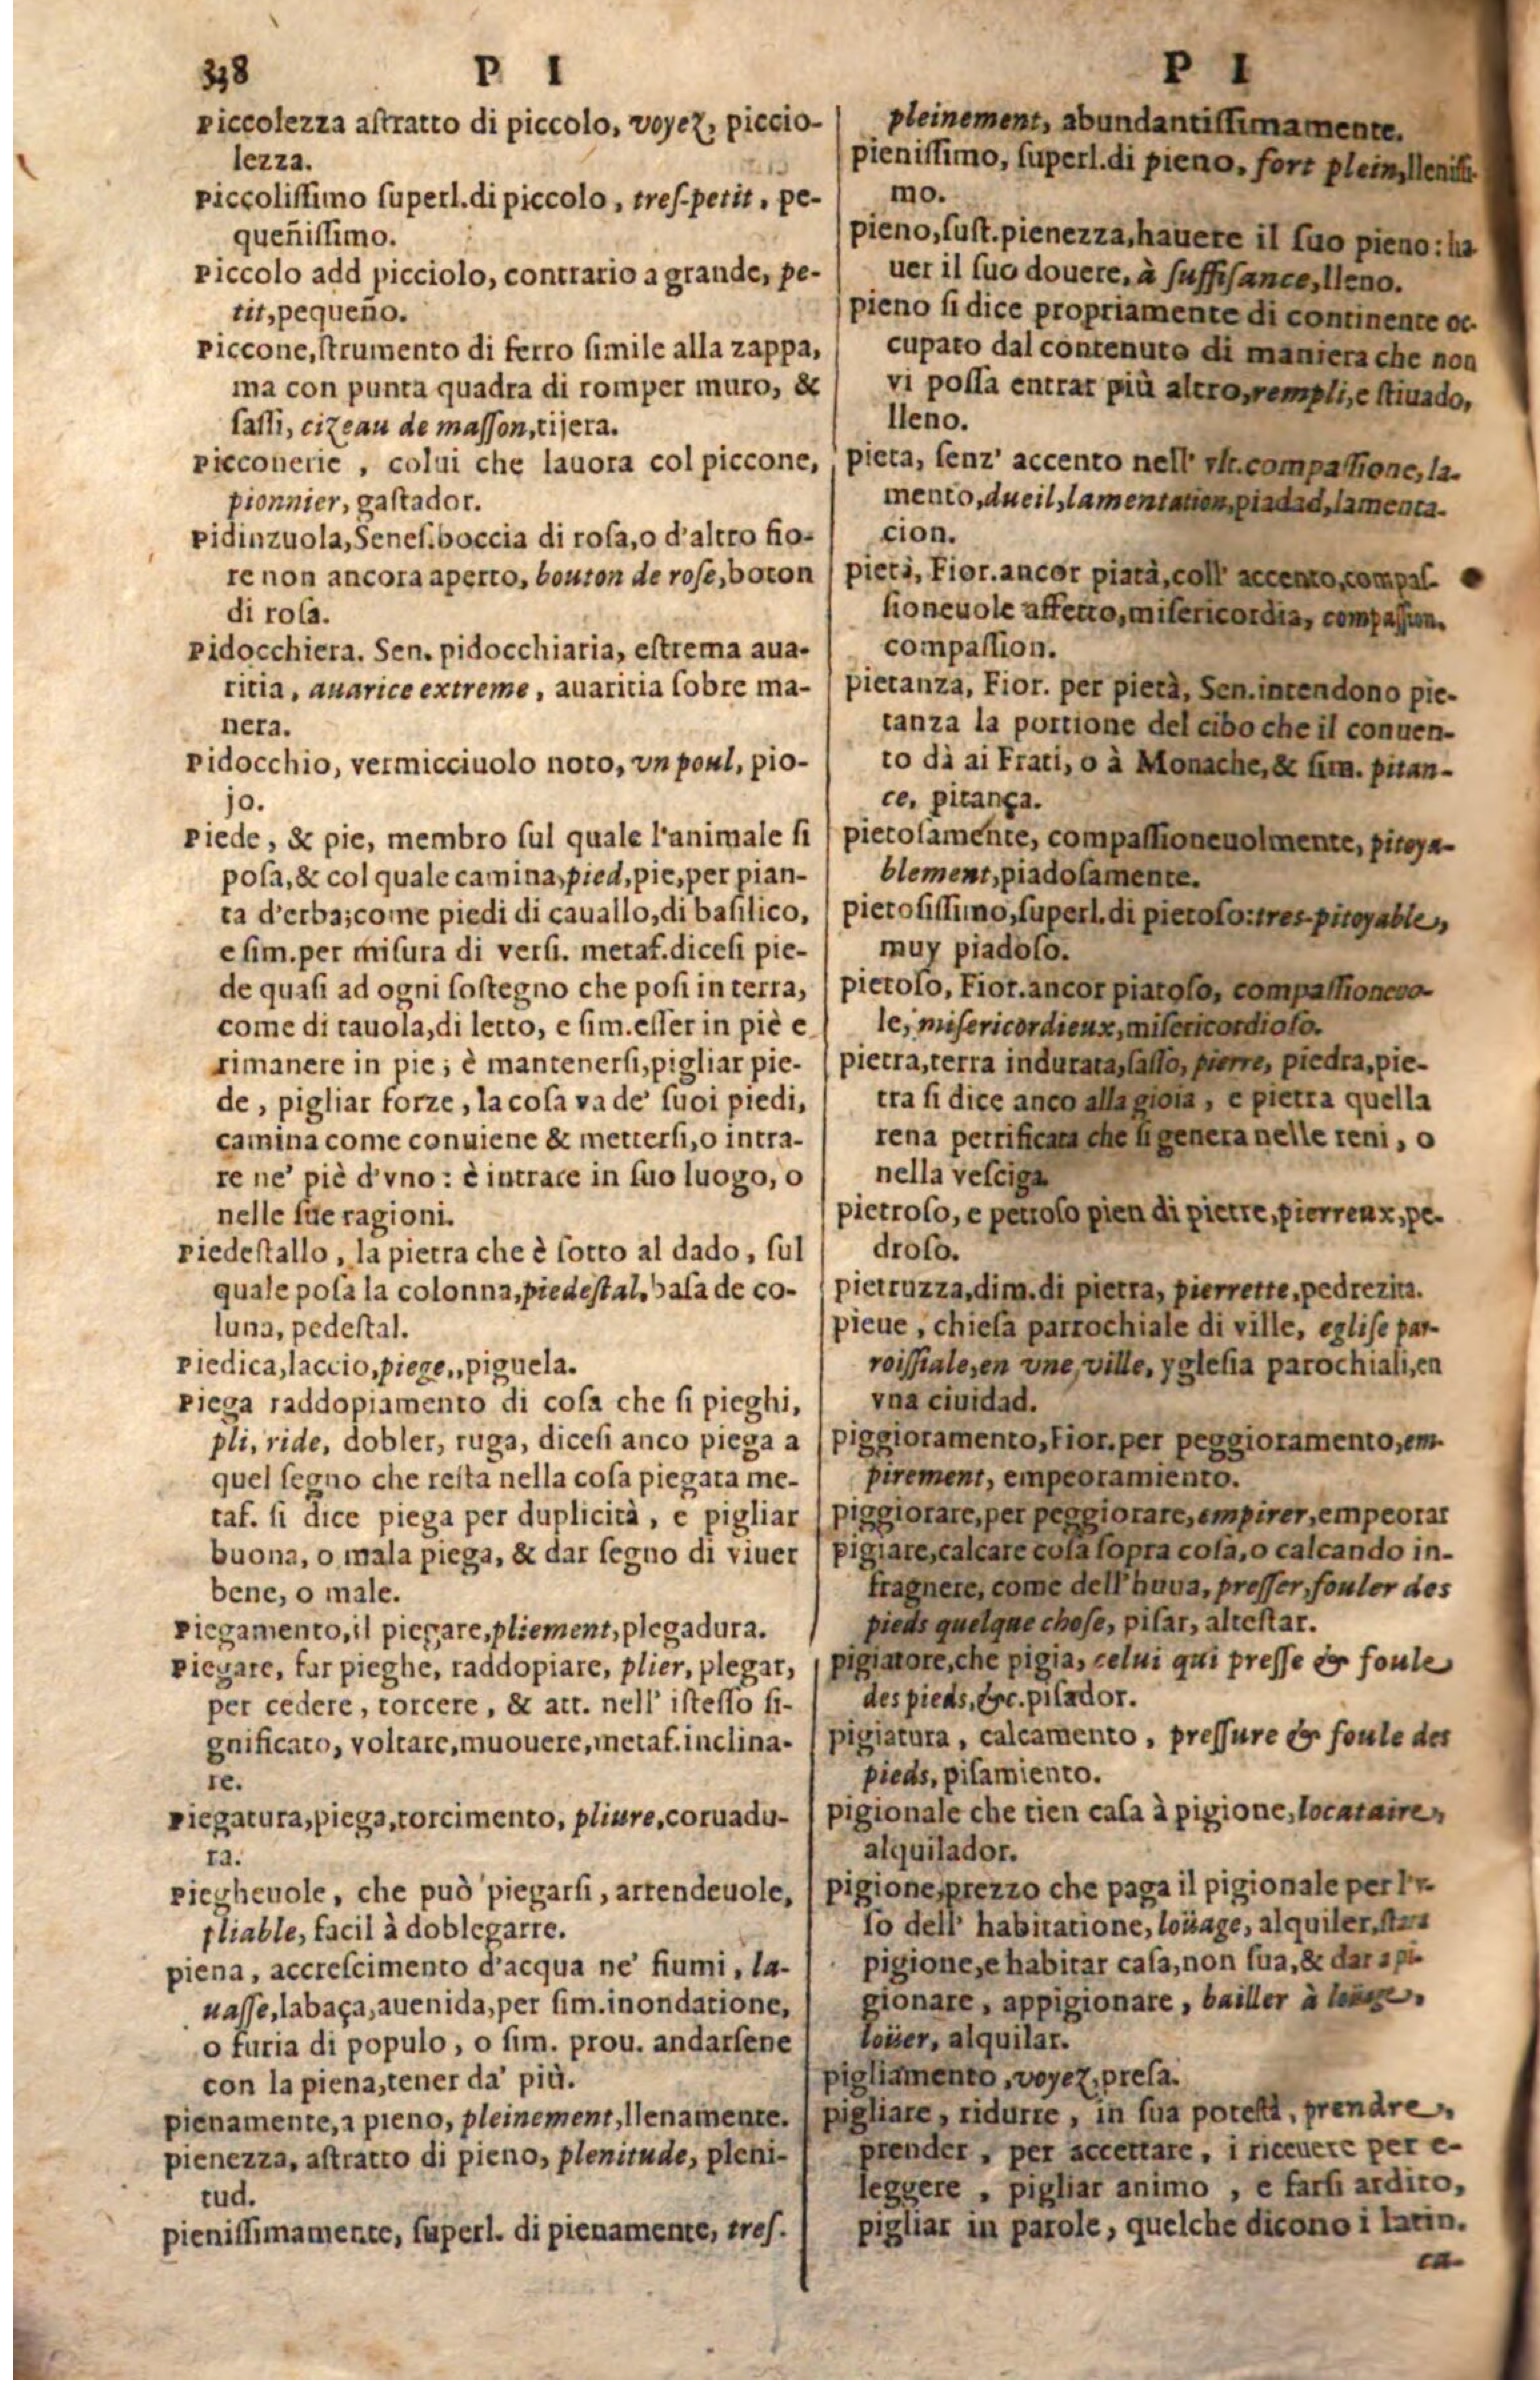 338 P I
piccolezza aſtratto di piccolo, voyez, piccio-
lezza.
piccoliſſimo ſuperl.di piccolo, treſ-petit, pe-
queñiſſimo.
piccolo add picciolo, contrario a grande, pe-
tit,pequeño.
piccone,ſtrumento di ferro ſimile alla zappa,
ma con punta quadra di romper muro, &
ſaſſi, cizeau de maſſon,tijera.
picconerie, colui che lauora col piccone,
pionnier, gaſtador.
pidinzuola,Seneſ.boccia di roſa,o d'altro fio-
re non ancora aperto, bouton de roſe,boton
di roſa.
pidocchiera. Sen. pidocchiaria, eſtrema aua-
ritia, auarice extreme, auaritia ſobre ma-
nera.
pidocchio, vermicciuolo noto, vn poul, pio-
jo.
piede, & pie, membro ſul quale l'animale ſi
poſa,& col quale camina,pied,pie,per pian-
ta d'erba;come piedi di cauallo,di baſilico,
e ſim.per miſura di verſi. metaf.diceſi pie-
de quaſi ad ogni ſoſtegno che poſi in terra,
come di tauola,di letto, e ſim.eſſer in piè e
rimanere in pie; è mantenerſi,pigliar pie-
de, pigliar forze, la coſa va de' ſuoi piedi,
camina come conuiene & metterſi,o intra-
re ne' piè d'vno: è intrare in ſuo luogo, o
nelle ſue ragioni.
piedeſtallo, la pietra che è ſotto al dado, ſul
quale poſa la colonna,piedeſtal,baſa de co-
luna, pedeſtal.
piedica,laccio,piege,,piguela.
piega raddopiamento di coſa che ſi pieghi,
pli, ride, dobler, ruga, diceſi anco piega a
quel ſegno che reſta nella coſa piegata me-
taf. ſi dice piega per duplicità, e pigliar
buona, o mala piega, & dar ſegno di viuer
bene, o male.
piegamento,il piegare,pliement,plegadura.
piegare, far pieghe, raddopiare, plier, plegar,
per cedere, torcere, & att. nell' iſteſſo ſi-
gnificato, voltare,muouere,metaf.inclina-
re.
piegatura,piega,torcimento, pliure,coruadu-
ra.
piegheuole, che può piegarſi, arrendeuole,
pliable, facil à doblegarre.
piena, accreſcimento d'acqua ne' fiumi, la-
uaſſe,labaça,auenida,per ſim.inondatione,
o furia di populo, o ſim. prou. andarſene
con la piena,tener da' più.
pienamente,a pieno, pleinement,llenamente.
pienezza, aſtratto di pieno, plenitude, pleni-
tud.
pieniſſimamente, ſuperl. di pienamente, treſ.
P I
pleinement, abundantiſſimamente.
pieniſſimo, ſuperl.di pieno, fort plein,lleniſſi-
mo.
pieno,ſuſt.pienezza,hauere il ſuo pieno: ha
uer il ſuo douere, à ſuffiſance,lleno.
pieno ſi dice propriamente di continente oc-
cupato dal contenuto di maniera che non
vi poſſa entrar più altro,rempli,e ſtiuado,
lleno.
pieta, ſenz' accento nell' vlt.compaſſione,la-
mento,dueil,lamentation,piadad,lamenta-
cion.
pietà, Fior.ancor piatà,coll' accento,compaſ-
ſioneuole affetto,miſericordia, compaſſion,
compaſſion.
pietanza, Fior. per pietà, Sen.intendono pie-
tanza la portione del cibo che il conuen-
to dà ai Frati, o à Monache,& ſim. pitan-
ce, pitança.
pietoſamente, compaſſioneuolmente, pitoya-
blement,piadoſamente.
pietoſiſſimo,ſuperl.di pietoſo:tres-pitoyable,
muy piadoſo.
pietoſo, Fior.ancor piatoſo, compaſſioneuo-
le, miſericordieux,miſericordioſo.
pietra,terra indurata,ſaſſo, pierre, piedra,pie-
tra ſi dice anco alla gioia, e pietra quella
rena petrificata che ſi genera nelle reni, o
nella veſciga.
pietroſo, e petroſo pien di pietre,pierreux,pe-
droſo.
pietruzza,dim.di pietra, pierrette,pedrezita.
pieue, chieſa parrochiale di ville, egliſe par-
roiſſiale,en vne,ville, ygleſia parochiali,en
vna ciuidad.
piggioramento,Fior.per peggioramento,em-
pirement, empeoramiento.
piggiorare,per peggiorare,empirer,empeorar
pigiare,calcare coſa ſopra coſa,o calcando in-
fragnere, come dell' huua, preſſer,fouler des
pieds quelque choſe, piſar, alteſtar.
pigiatore,che pigia, celui qui preſſe & foule
des pieds,&c.piſador.
pigiatura, calcamento, preſſure & foule des
pieds, piſamiento.
pigionale che tien caſa à pigione,locataire,
alquilador.
pigione,prezzo che paga il pigionale per l'v-
ſo dell' habitatione, loüage, alquiler,ſtar a
pigione,e habitar caſa,non ſua,& dar a pi-
gionare, appigionare, bailler à loüage,
loüer, alquilar.
pigliamento,voyez,preſa.
pigliare, ridurre, in ſua poteſtà, prendre,
prender, per accettare, i riceuere per e-
leggere, pigliar animo, e farſi ardito,
pigliar in parole, quelche dicono i latin.
ca-